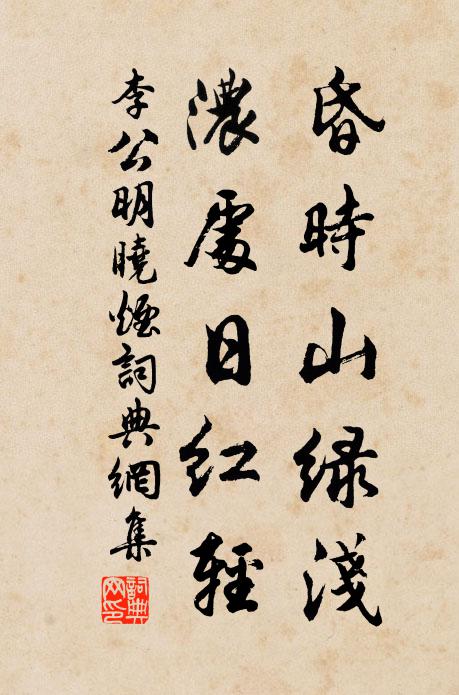 昏時山緑淺
濃處日紅輕
李公明曉煙詞典網集
詞典网印